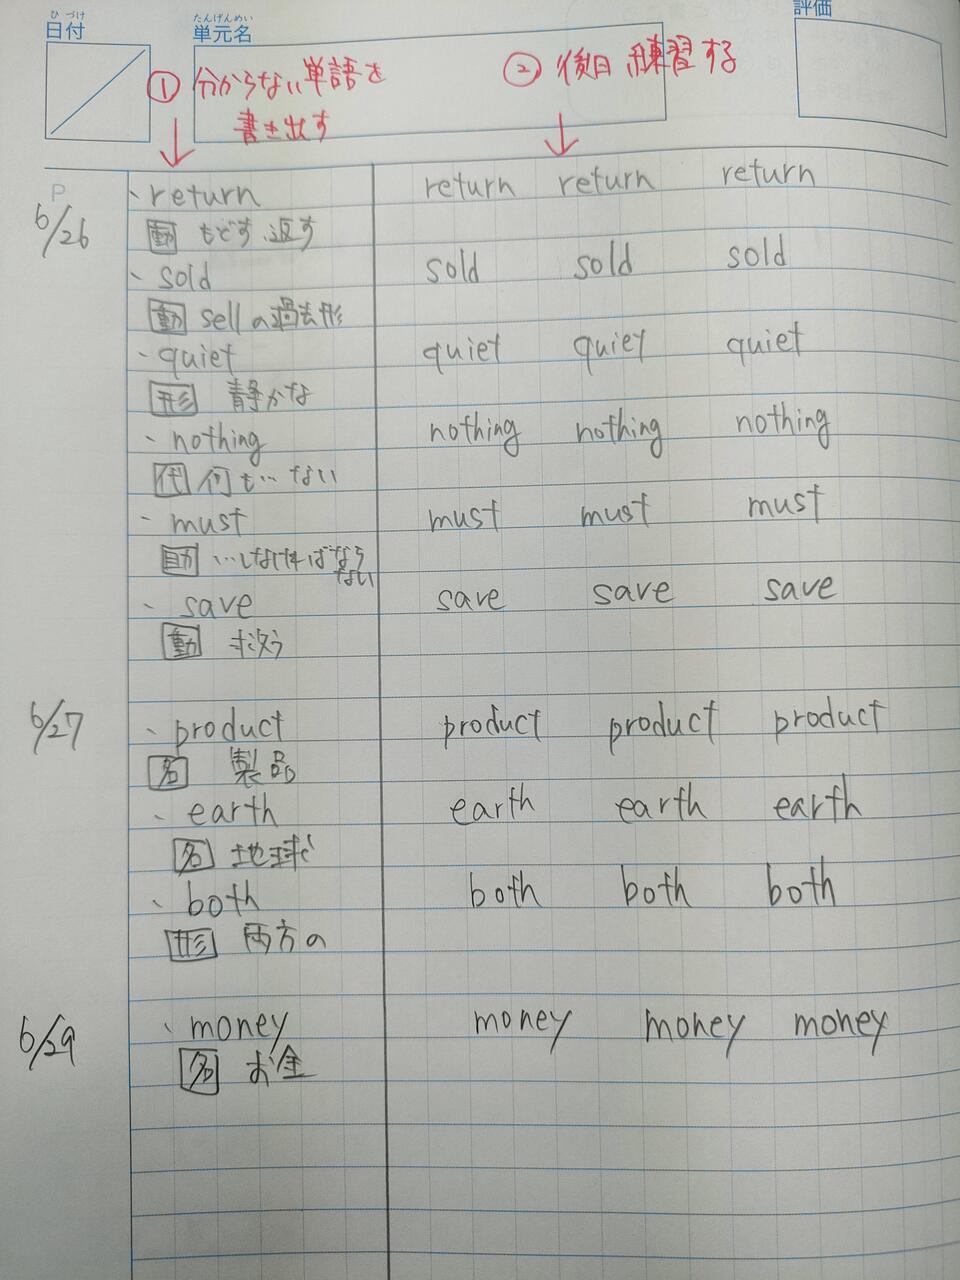 ひづけ
日付
たんげんめい
単元名
評価
① 分からない単語を
書き出す
② 後日 練習する
P
6/26
・return return return return
動 もどす、返す
・sold sold sold sold
動 sellの過去形
・quiet quiet quiet quiet
形 静かな
・nothing nothing nothing nothing
代 何も…ない
・must must must must
助 …しなければなら
ない
・save save save save
動 救う
6/27
・product product product product
名 製品
・earth earth earth earth
名 地球
・both both both both
形 両方の
6/29
・money money money money
名 お金